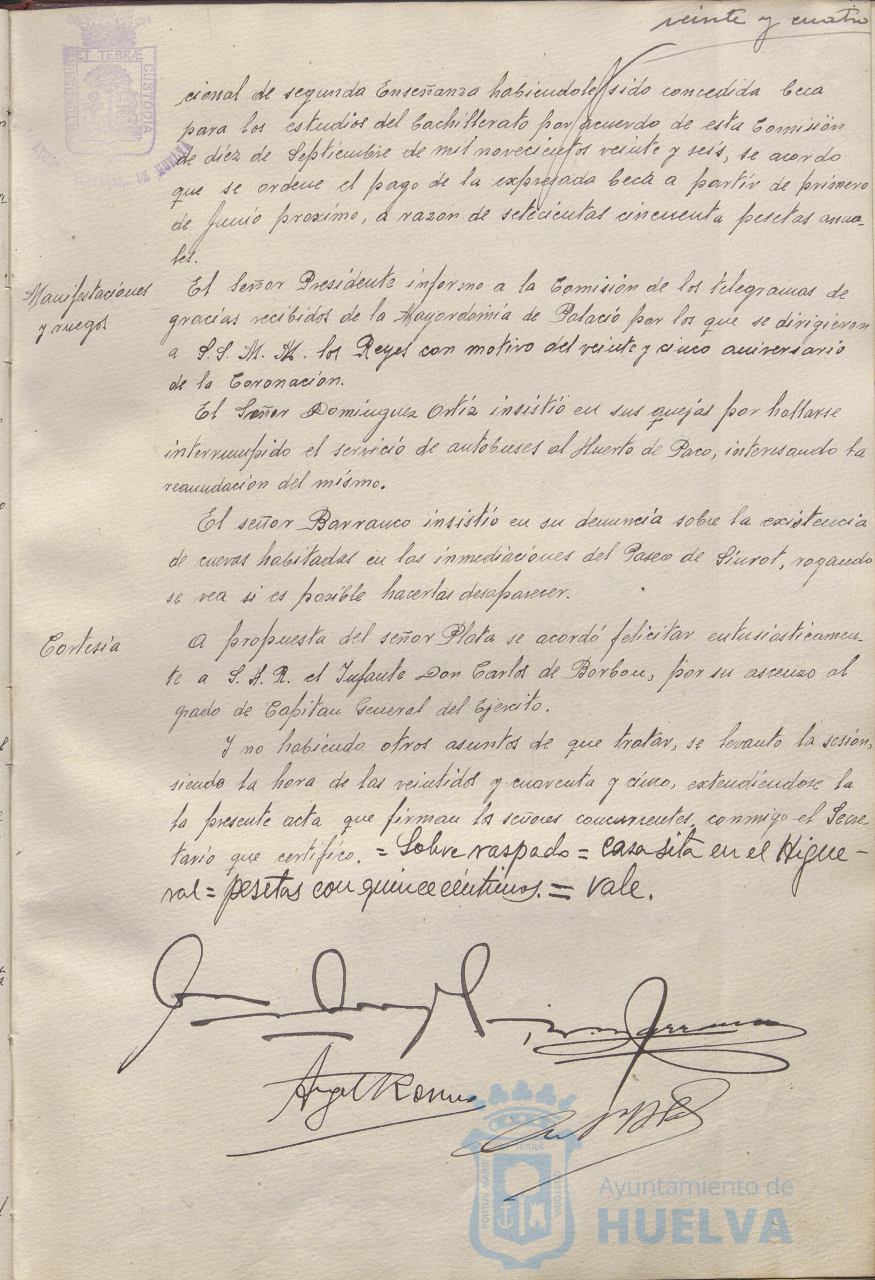 veinte y cuatro
cional de segunda Enseñanza habiendole sido concedida beca
para los estudios del Bachillerato por acuerdo de esta Comisión
de diez de Septiembre de mil novecientos veinte y seis, se acordo
que se ordene el pago de la expresada beca a partir de primero
de Junio proximo, a razón de setecientas cincuenta pesetas anua-
les.
Manifestaciones
y ruegos
El Señor Presidente informo a la Comisión de los telegramas de
gracias recibidos de la Mayordomia de Palacio por los que se dirigieron
a S.S. M. M. los Reyes con motivo del veinte y cinco aniversario
de la Coronación.
El Señor Dominguez Ortiz insistio en sus quejas por hallarse
interrumpido el servicio de autobuses al Huerto de Paco, interesando la
reanudación del mismo.
El señor Barranco insistio en su denuncia sobre la existencia
de cuevas habitadas en las inmediaciones del Paseo de Siurot, rogando
se vea si es posible hacerlas desaparecer.
Cortesia
A propuesta del señor Plata se acordó felicitar entusiásticamen-
te a S. A. R. el Infante Don Carlos de Borbon, por su ascenso al
grado de Capitan General del Ejército.
Y no habiendo otros asuntos de que tratar, se levanto la sesión,
siendo la hora de las veintidos y cuarenta y cinco, extendiendose la
la presente acta que firman los señores concurrentes, conmigo el Secre-
tario que certifico. = Sobre raspado = casa sita en el Higue-
ral = pesetas con quince céntimos. = Vale.
Angel Romero
PORTUS MARIS ET TERRAE CUSTODIA
Ayuntamiento de
HUELVA